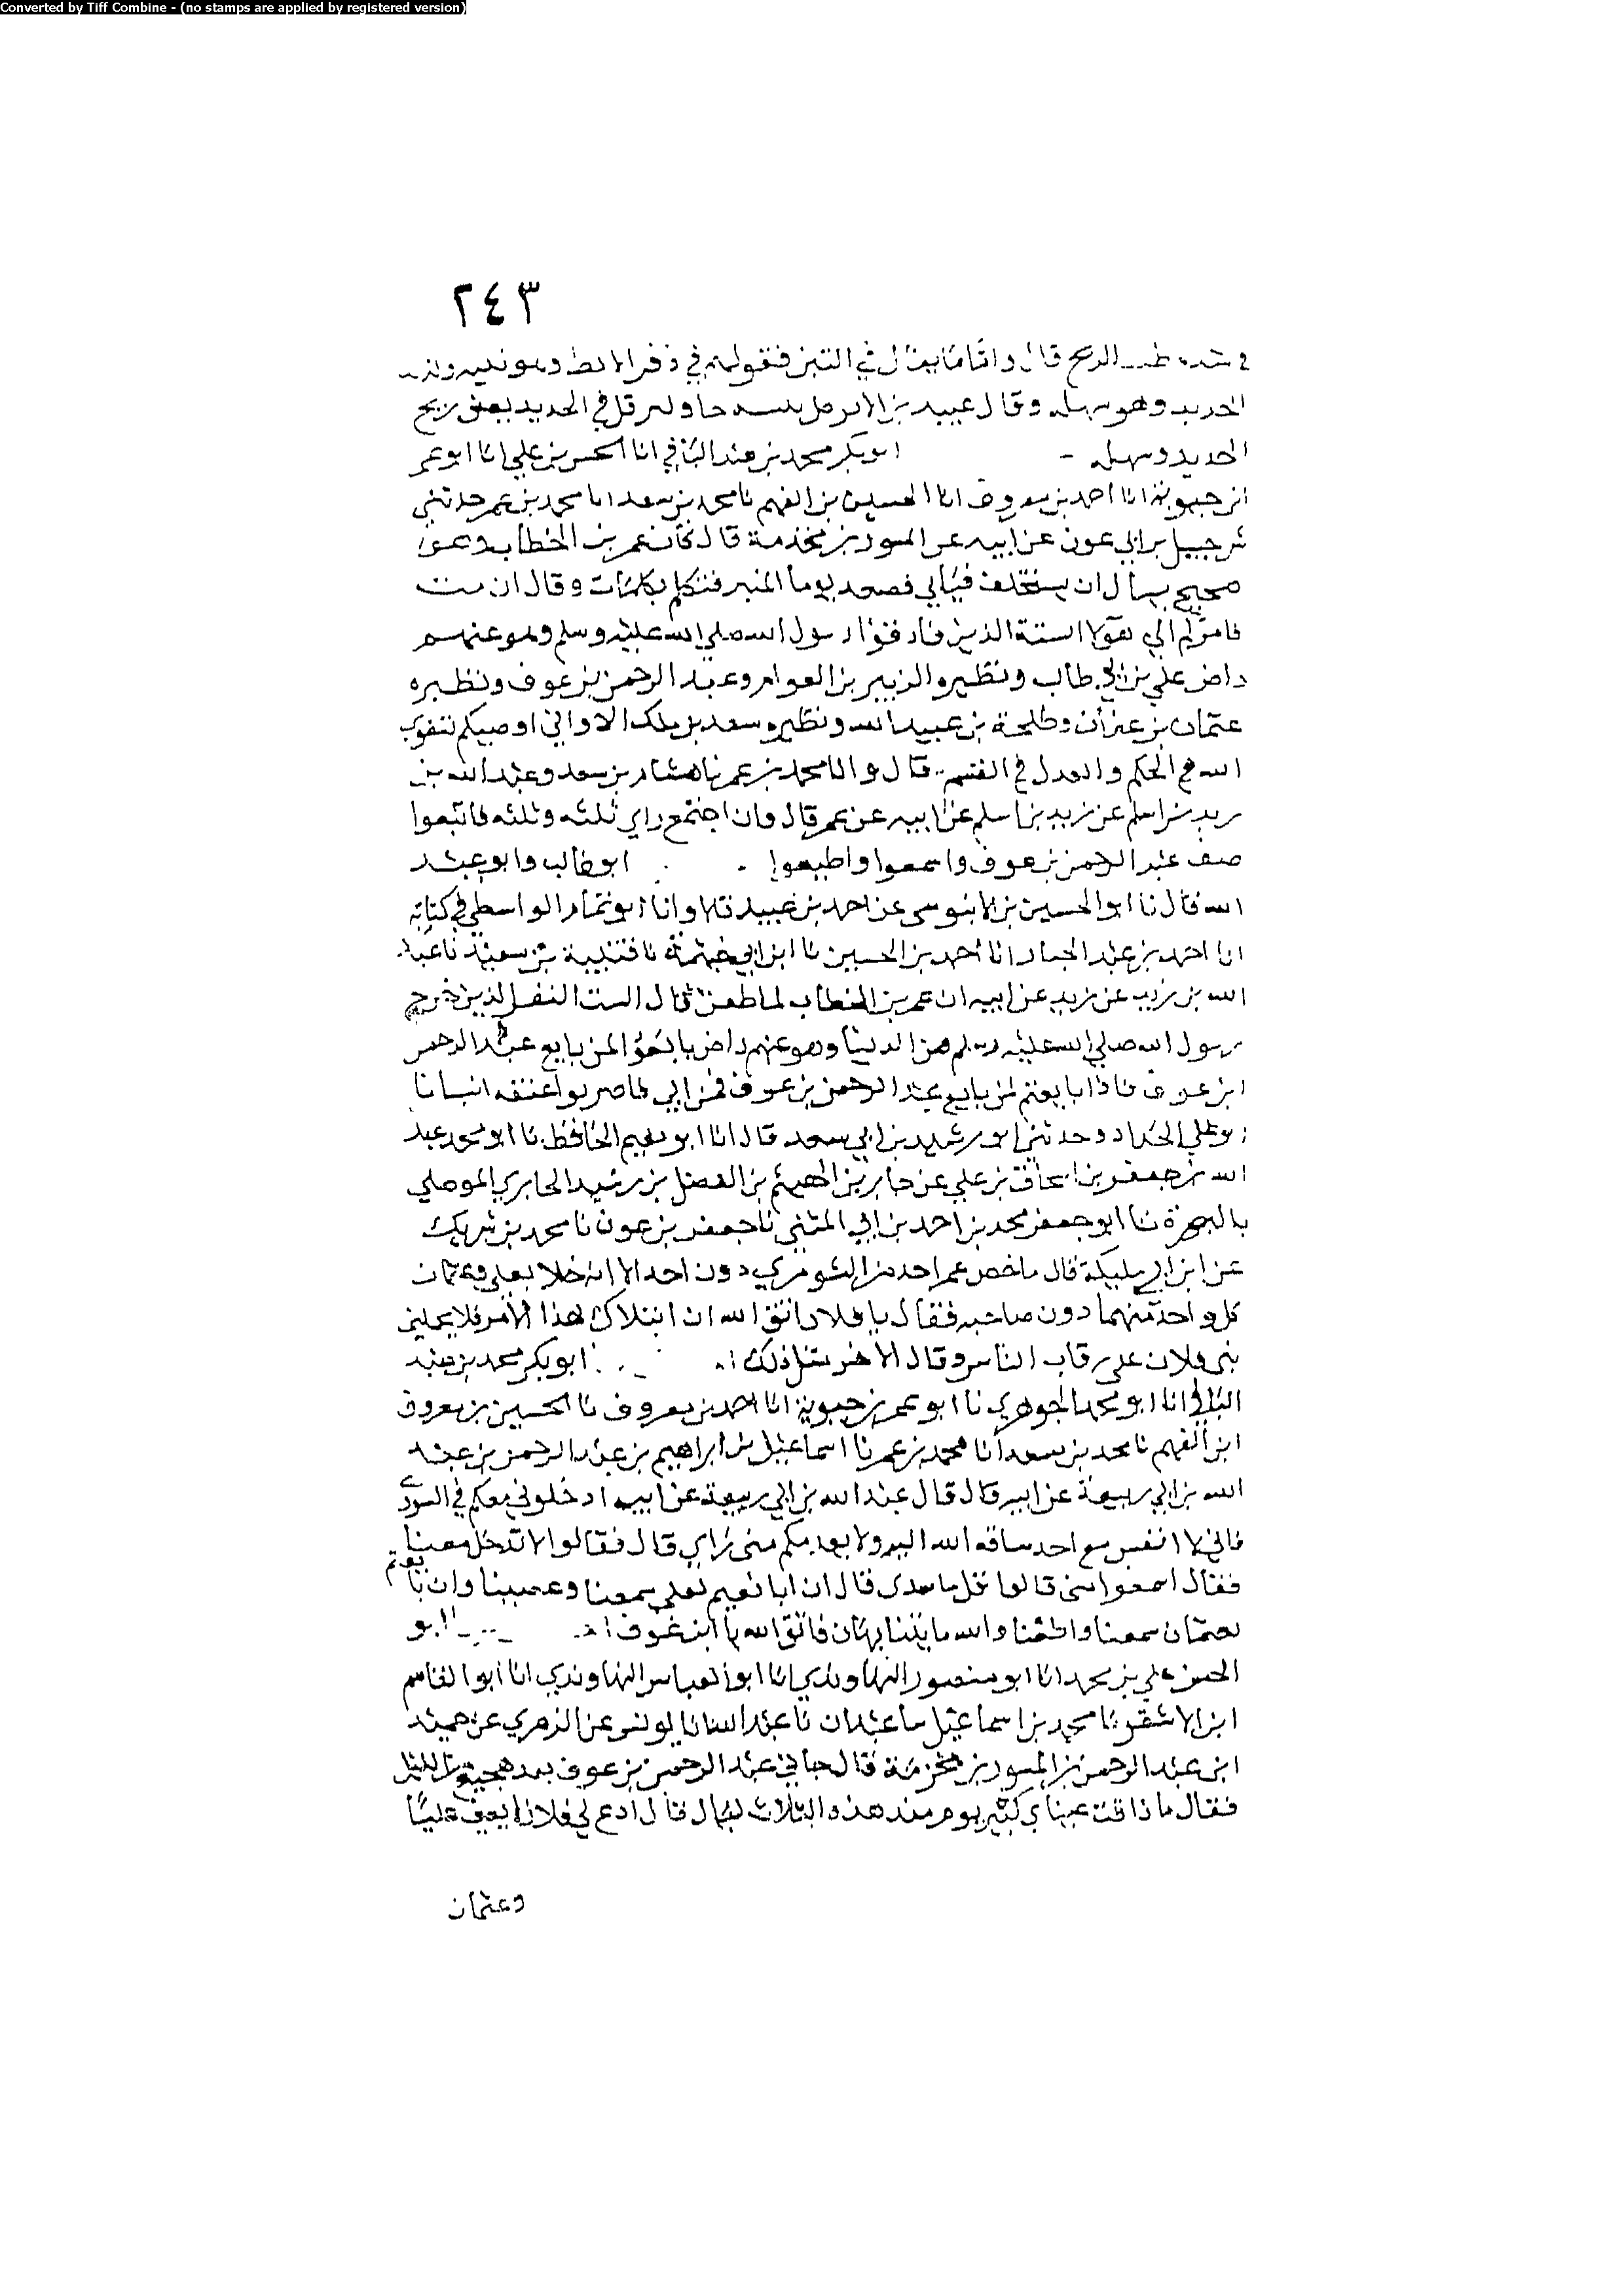 Converted by Tiff Combine - (no stamps are applied by registered version)
٢٤٣
الريح قال واما ما يقال في النتن فقولهم في ذفر الابط وهو نتنه
الحديد وهو سهكه وقال عبيد بن الابرص في الحديد يعني ريح
الحديد وسهكه - ابو بكر محمد بن عبد الباقي انا الحسن بن علي انا ابو عمر
ابن حيوية انا احمد بن معروف انا الحسين بن الفهم نا محمد بن سعد انا محمد بن عمر حدثني
شرحبيل بن ابي عون عن ابيه عن المسور بن مخرمة قال كان عمر بن الخطاب وهو
صحيح يسأل ان يستخلف فيأبي فصعد يوما المنبر فتكلم بكلمات وقال ان مت
فامركم الي هولا الستة الذين فارقوا رسول الله صلي الله عليه وسلم وهو عنهم
راض علي بن ابي طالب ونظيره الزبير بن العوام وعبد الرحمن بن عوف ونظيره
عثمان بن عفان وطلحة بن عبيد الله ونظيره سعد بن ملك الا واني اوصيكم بتقوي
الله في الحكم والعدل في القسم قال وانا محمد بن عمر نا هشام بن سعد وعبد الله بن
زيد بن اسلم عن زيد بن اسلم عن ابيه عن عمر قال وان اجتمع راي ثلثه وثلثه فاتبعوا
صنف عبد الرحمن بن عوف واسمعوا واطيعوا ابو غالب وابو عبد
الله قال نا ابو الحسين بن الابنوسي عن احمد بن عبيد وانا ابو تمام الواسطي في كتابه
انا احمد بن عبيد انا احمد بن الحسين نا ابن ابي خيثمة نا قتيبة بن سعيد نا عبد
الله بن زيد عن زيد عن ابيه ان عمر بن الخطاب لما طعن قال الستة النفر الذين خرج
رسول الله صلي الله عليه وسلم من الدنيا وهو عنهم راض بايعوا لمن بايع عبد الرحمن
ابن عوف فاذا بايعتم لمن بايع عبد الرحمن بن عوف فمن ابي فاضربوا عنقه انبانا
ابو علي الحداد وحدثني ابو رشيد بن ابي سعد قال انا ابو نعيم الحافظ نا ابو محمد عبد
الله بن جعفر بن اسحاق بن علي عن جابر بن الهيثم بن الفضل بن رشيد الجابري الموصلي
بالبصرة نا ابو جعفر محمد بن احمد بن ابي المثني نا جعفر بن عون نا محمد بن شريك
عن ابن ابي مليكة قال ما خص عمر احد من الشوري دون احد الا انه خلا بعلي وعثمان
كل واحد منهما دون صاحبه فقال يا فلان اتق الله ان ابتلاك بهذا الامر فلا تحملن
بني فلان علي رقاب الناس وقال للاخر مثل ذلك ابو بكر محمد بن عبد
الباقي انا ابو محمد الجوهري نا ابو عمر بن حيوية انا احمد بن معروف نا الحسين بن معروف
ابن الفهم نا محمد بن سعد انا محمد بن عمر نا اسماعيل بن ابراهيم بن عبد الرحمن بن عبد
الله بن ابي ربيعة عن ابيه قال قال عبد الله بن ابي ربيعة عن ابيه ادخلوني معكم في الشوري
فاني لا انفس مع احد ساقه الله اليه ولا يعدمكم مني راي قال فقالوا لا تدخل معنا
فقال اسمعوا مني قالوا قل ما عندك قال ان بايعتم لعلي سمعنا وعصينا وان بايعتم
لعثمان سمعنا واطعنا والله ما يتشابهان فاتق الله يا ابن عوف ابو
الحسن علي بن محمد انا ابو منصور النهاوندي انا ابو العباس النهاوندي انا ابو القاسم
ابن الاشقر نا محمد بن اسماعيل نا عبدان نا عبد الله نا يونس عن الزهري عن حميد
ابن عبد الرحمن بن المسور بن مخرمة قال جاني عبد الرحمن بن عوف بعد هجيع من الليل
فقال ما ذاقت عيناي كثير نوم منذ هذه الثلاث ليال قال ادع لي فلانا يعني عليا
وعثمان